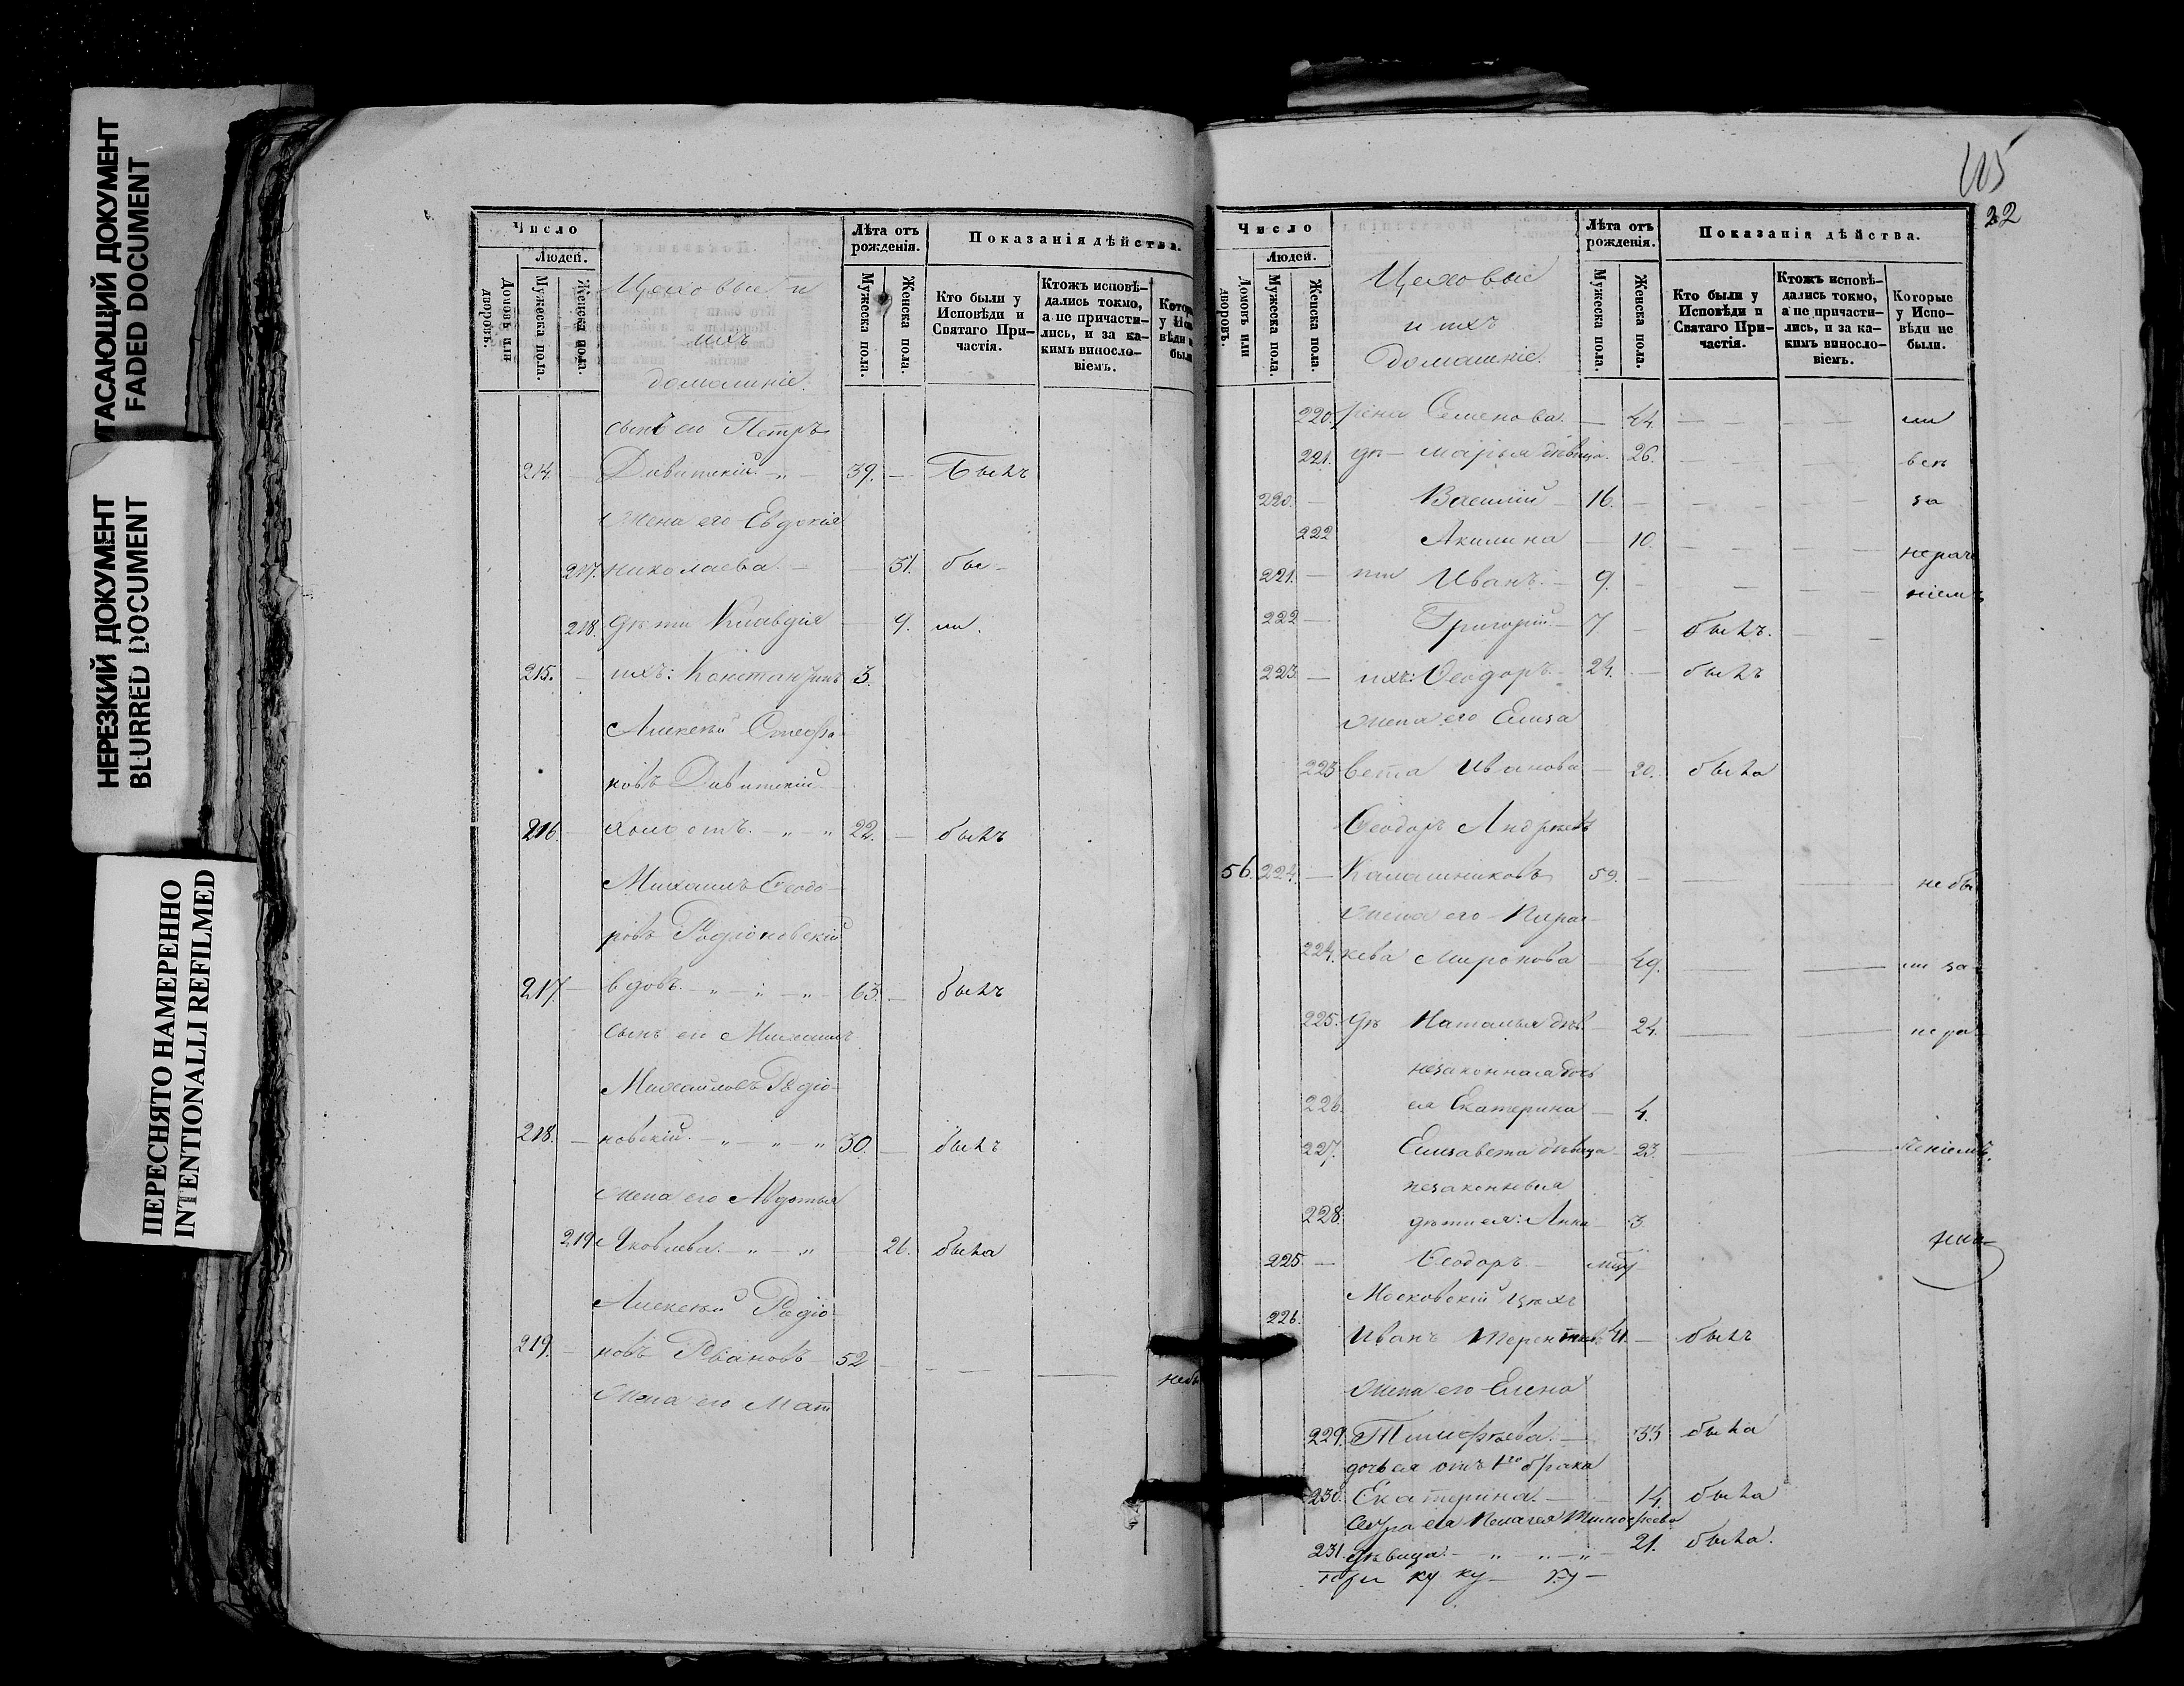 УГАСАЮЩИЙ ДОКУМЕНТ
FADED DOCUMENT
НЕРЕЗКИЙ ДОКУМЕНТ
BLURRED DOCUMENT
ПЕРЕСНЯТО НАМЕРЕННО
INTENTIONALLI REFILMED
Число
Людей.
Домовъ или дворовъ.
Мужеска пола.
Женска пола.
Цеховые и
ихъ
домашніе.
Лѣта отъ рожденія.
Мужеска пола.
Женска пола.
Показанія дѣйства.
Кто были у Исповѣди и Святаго Причастія.
Ктожъ исповѣдались токмо, а не причастились, и за какимъ винословіемъ.
сынъ его Петръ
214. — Давитскій — 39. — Былъ
Жена его Евдокія
217. Николаева. — — 31. бы-
218. Дѣти Клавдія — 9. ли.
215. — ихъ: Константинъ 3.
Алексѣй Стефа
новъ Давитскій
216. — холостъ. — „ — „ 22. — былъ
Михаилъ Ѳеодо-
ровъ Родіоновскій
217. — вдовъ. — „ — „ — „ 63. — былъ
Сынъ его Михаилъ
Михайловъ Родіо-
218. — новскій. — „ — „ — „ 30. — былъ
Жена его Авдотья
219. Яковлева. — „ — „ — 26. была
Алексѣй Родіо-
219. — новъ 52 — —
Жена его Мат
115
22
Число
Людей.
Домовъ или дворовъ.
Мужеска пола.
Женска пола.
Цеховые
и ихъ
домашніе.
Лѣта отъ рожденія.
Мужеска пола.
Женска пола.
Показанія дѣйства.
Кто были у Исповѣди и Святаго Причастія.
Ктожъ исповѣдались токмо, а не причастились, и за какимъ винословіемъ.
Которые у Исповѣди не были.
220. рена Семенова. — 44. — — — — ли
221. дѣ- Марья дѣвица. 26. — — — —
220. — Василій — 16. — — — — — за
222 Акилина — 10. — — — — нераче
221. — ти Иванъ. — 9. — — — — ніемъ
222 — Григорій. — 7 — былъ. — —
223. — ихъ: Ѳеодоръ. — 24. — былъ
Жена его Елиза
223 вета Иванова — 20. была
Ѳеодоръ Андреевъ
56. 224. — Калашниковъ 59. — — — не бы
Жена его Параc-
224. кева Миронова — 49. — — ли за-
225. Дѣ Наталья дѣв. — 24. — — не ра-
незаконная дочь
226. ея Екатерина — 4.
227. Елизавета дѣвица — 23. — — ченіемъ.
незаконныя
228. дѣти ея: Анна — 3.
225 — Ѳеодоръ —
Московскій цехъ
226. Иванъ Терентьевъ 41. — былъ
Жена его Елена
229. Тимофѣева. — 33 была
дочь ея отъ 1го брака
230. Екатерина. — — 14. была
Сестра ея Пелагея Тимофѣева
231. дѣвица. — „ — „ — „ — 21. была.